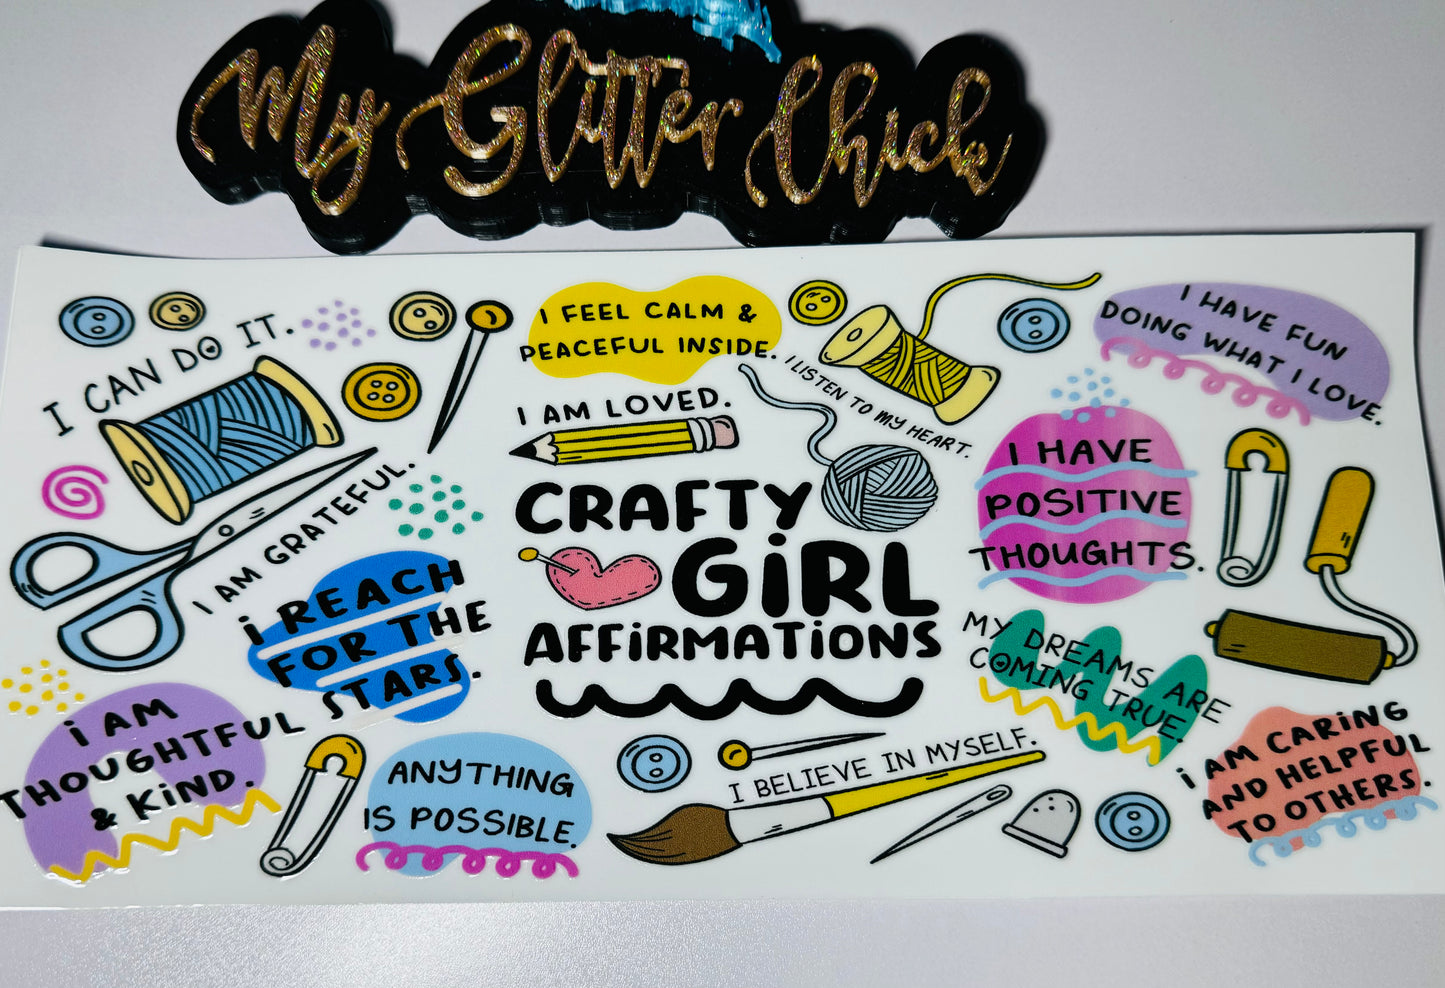 My Glitter Chick
I CAN DO IT.
I AM GRATEFUL.
i REACH
FOR THE
STARS.
i AM
THOUGHTFUL
& KiND.
ANYTHING
IS POSSIBLE.
I FEEL CALM &
PEACEFUL INSIDE.
I AM LOVED.
I LISTEN TO MY HEART.
CRAFTY
GiRL
AFFiRMATiONS
I BELIEVE IN MYSELF.
I HAVE FUN
DOING WHAT I LOVE.
I HAVE
POSITIVE
THOUGHTS.
MY DREAMS ARE
COMING TRUE.
i AM CARiNG
AND HELPFUL
TO OTHERS.